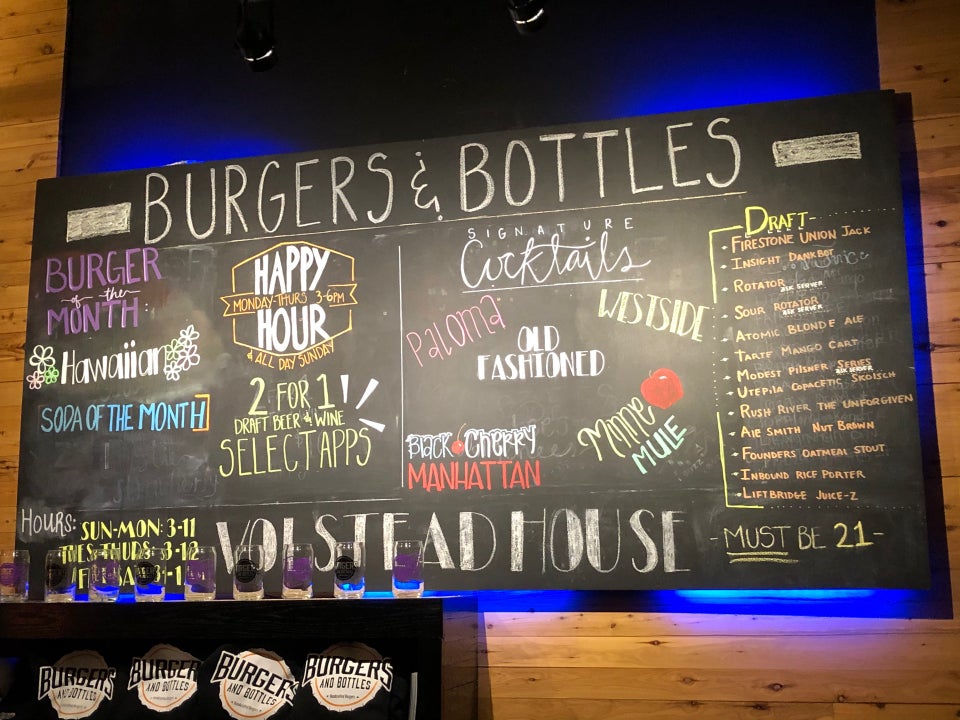 BURGERS & BOTTLES
BURGER
of the
MONTH
Hawaiian
SODA OF THE MONTH
HAPPY
MONDAY-THURS 3-6PM
HOUR
& ALL DAY SUNDAY
2 FOR 1
DRAFT BEER & WINE
SELECT APPS
SIGNATURE
Cocktails
Paloma
WESTSIDE
OLD
FASHIONED
Black Cherry
MANHATTAN
Minne
MULE
DRAFT
FIRESTONE UNION JACK
INSIGHT DANKBOT
ROTATOR ASK SERVER
SOUR ROTATOR
ASK SERVER
ATOMIC BLONDE ALE
TARTE MANGO CART
MODEST PILSNER SERIES
ASK SERVER
UTEPILA COPACETIC SKOISCH
RUSH RIVER THE UNFORGIVEN
ALE SMITH NUT BROWN
FOUNDERS OATMEAL STOUT
INBOUND RICE PORTER
LIFTBRIDGE JUICE-Z
HOURS:
SUN-MON: 3-11
TUES-THURS: 3-12
VOLSTEAD HOUSE
-MUST BE 21-
BURGERS
AND BOTTLES
BURGER
AND BOTTLES
BURGERS
AND BOTTLES
BURGERS
AND BOTTLES